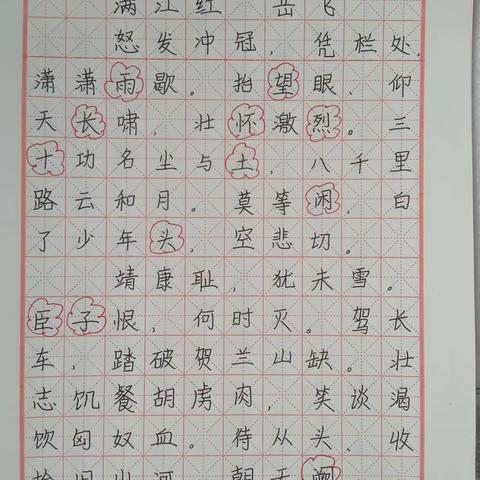 满江红 岳飞
怒发冲冠，凭栏处、
潇潇雨歇。抬望眼、仰
天长啸，壮怀激烈。三
十功名尘与土，八千里
路云和月。莫等闲、白
了少年头，空悲切。
靖康耻，犹未雪。
臣子恨，何时灭。驾长
车，踏破贺兰山缺。壮
志饥餐胡虏肉，笑谈渴
饮匈奴血。待从头、收
拾旧山河，朝天阙